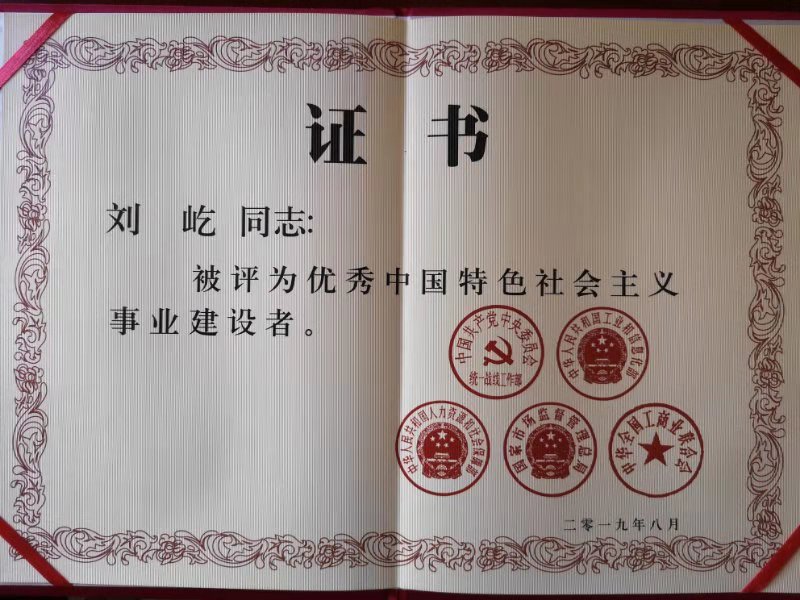 证 书
刘 屹 同志:
被评为优秀中国特色社会主义
事业建设者。
中国共产党中央委员会
统一战线工作部
中华人民共和国工业和信息化部
中华人民共和国人力资源和社会保障部
国家市场监督管理总局
中华全国工商业联合会
二零一九年八月